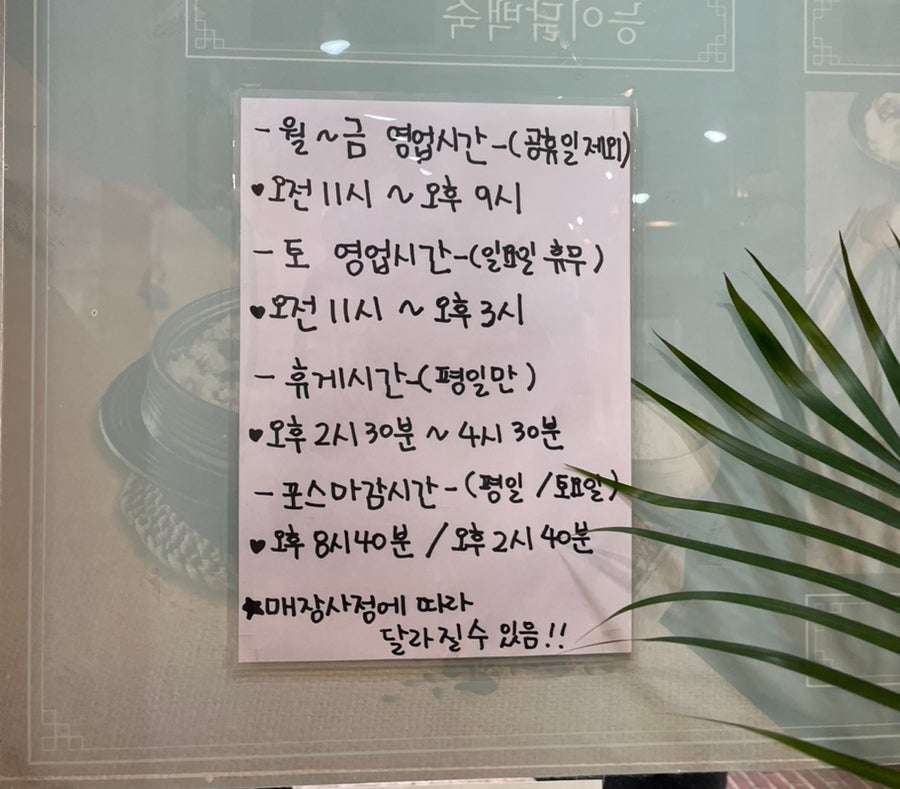 능이닭백숙
- 월 ~ 금 영업시간 - (공휴일 제외)
♥오전 11시 ~ 오후 9시
- 토 영업시간 - (일요일 휴무)
♥오전 11시 ~ 오후 3시
- 휴게시간 - (평일만)
♥오후 2시 30분 ~ 4시 30분
- 포스마감시간 - (평일 / 토요일)
♥오후 8시 40분 / 오후 2시 40분
★매장사정에 따라
달라질수 있음!!